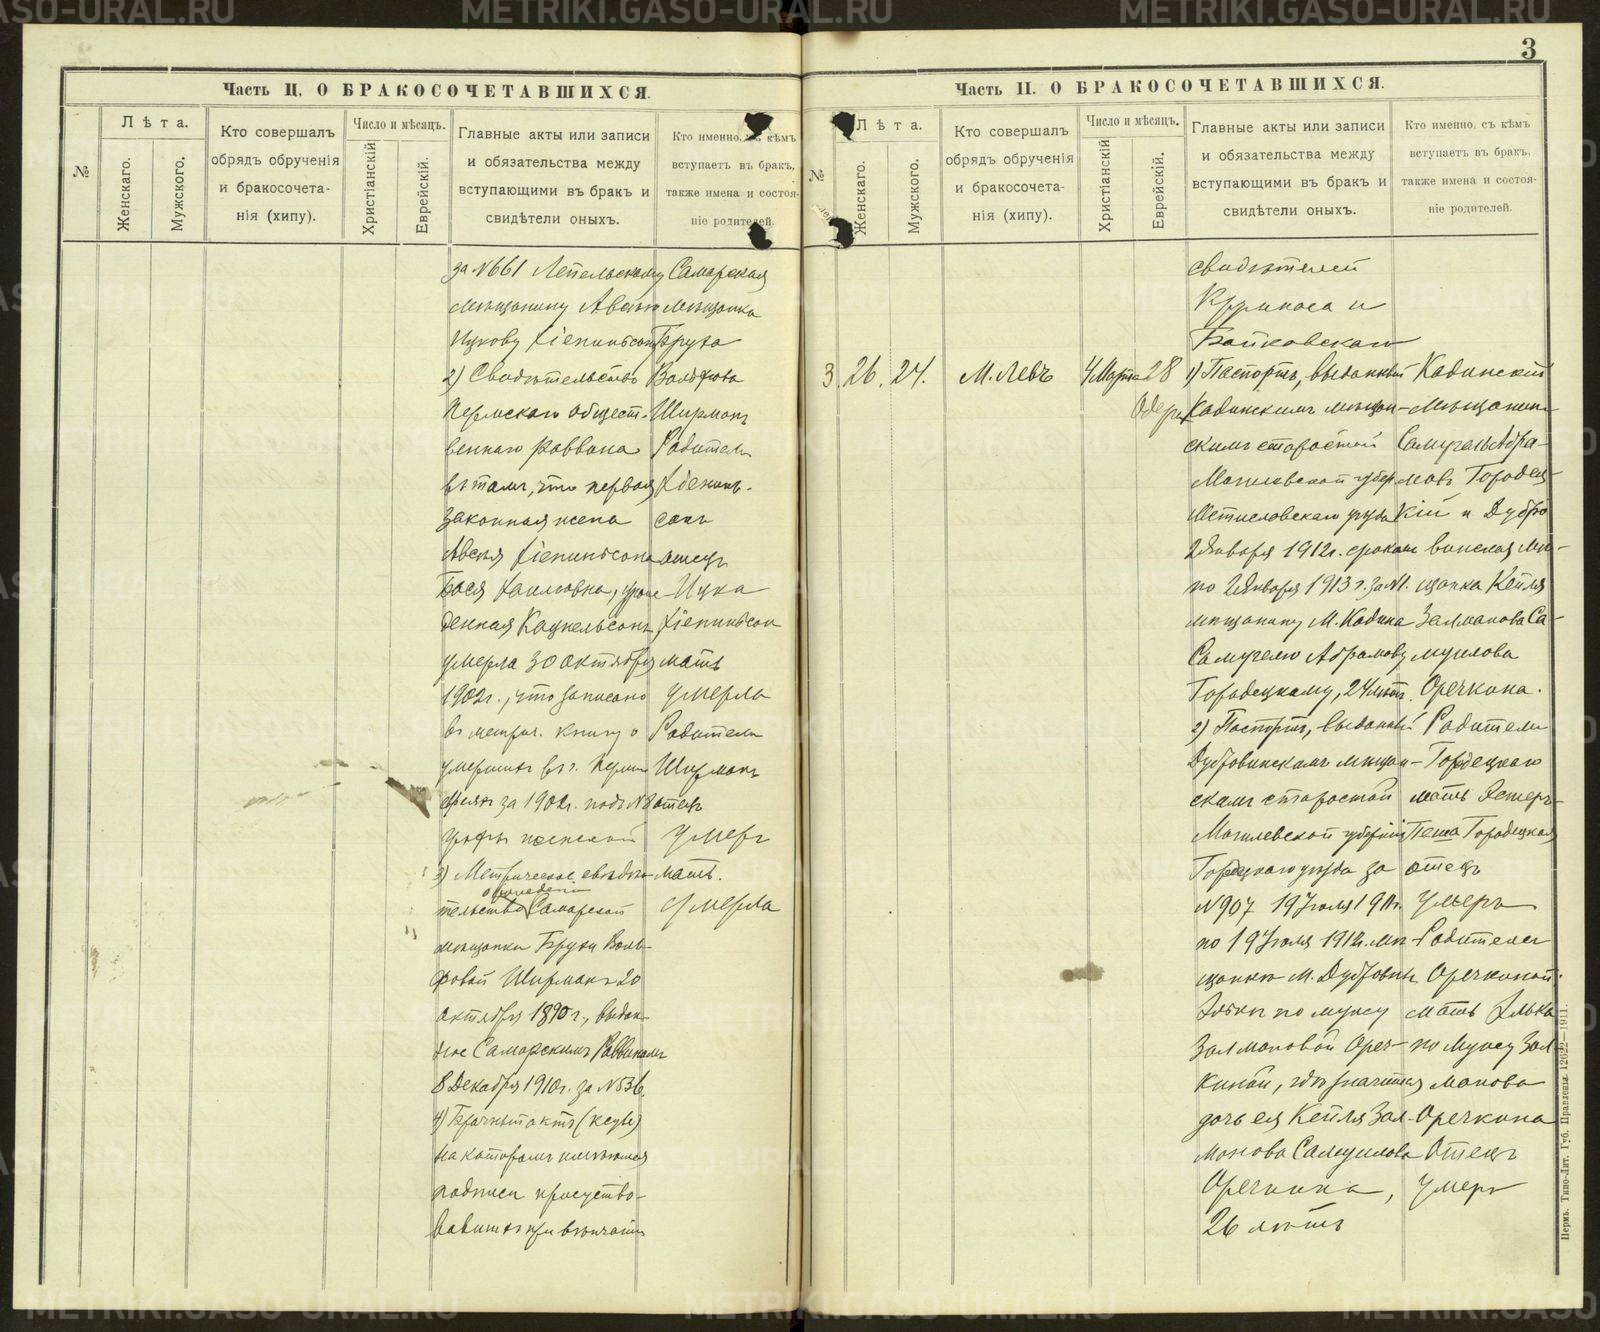 3
Часть II. О БРАКОСОЧЕТАВШИХСЯ.
№
Лѣта.
Женскаго.
Мужского.
Кто совершалъ
обрядъ обрученія
и бракосочета-
нія (хипу).
Число и мѣсяцъ.
Христіанскій
Еврейскій.
Главные акты или записи
и обязательства между
вступающими въ бракъ и
свидѣтели оныхъ.
Кто именно, съ кѣмъ
вступаетъ въ бракъ,
также имена и состоя-
ніе родителей.
за №661 Лепельскому
мѣщанину
Ицкову
2) Свидѣтельство
Пермскаго общест-
веннаго раввина
въ томъ, что первая
законная жена
Бася
умерла 30 октября
1902г., что записано
въ метрич. книгу о
умершихъ въ г. Перми
за 1902г. подъ №8
графы женской
3) Метрическое свидѣ-
тельство Самарской
мѣщанки Брухи Воль-
фовой Ширманъ 20
октября 1890г., выдан-
ное Самарскимъ Раввиномъ
8 Декабря 1910г. за №536.
4) Брачный актъ (ксубе)
на которомъ имѣются
подписи присутство-
вавшихъ при вѣнчаніи
Самарская
мѣщанка
Бруха
Вольфова
Ширманъ
Родители
сонъ
отецъ
Ицка
мать
умерла
Родители
Ширманъ
отецъ
умеръ
мать.
умерла
Часть II. О БРАКОСОЧЕТАВШИХСЯ.
№
Лѣта.
Женскаго.
Мужского.
Кто совершалъ
обрядъ обрученія
и бракосочета-
нія (хипу).
Число и мѣсяцъ.
Христіанскій
Еврейскій.
Главные акты или записи
и обязательства между
вступающими въ бракъ и
свидѣтели оныхъ.
Кто именно, съ кѣмъ
вступаетъ въ бракъ,
также имена и состоя-
ніе родителей.
3 26. 24. М. Левъ 4 Марта 28
Одеръ
свидѣтелей
Крумноса и
Байковскаго
1) Паспортъ, выданный
Кадинскимъ мѣщан-
скимъ старостой
Могилевской губер
Мстиславскаго уѣзда
2 Января 1912г. срокомъ
по 2 Января 1913 г. за №1.
мѣщанину М. Кадина
Самуелю Абрамову
Городецкому, 24 лѣтъ.
2) Паспортъ, выданный
Дубровинскимъ мѣщан-
скимъ старостой
Могилевской губерніи
Горецкаго уѣзда за
№907 19 Іюля 1911г.
по 19 Іюля 1912г. мѣ-
щанкѣ М. Дубровны
Элькѣ по мужу
Залмановой Ореч-
киной, гдѣ значится
дочь ея Кейля Зал-
манова Самуилова
Оречкина,
26 лѣтъ
Кадинскій
мѣщанинъ
Самуель Абра-
мовъ Городец-
кій и Дубро
винская мѣ-
щанка Кейля
Залманова Са-
муилова
Оречкина.
Родители
Городецкаго
мать Эстеръ-
Пеша Городецкая
отецъ
умеръ
Родители
Оречкиной:
мать Элька
по мужу Зал-
манова
Оречкина
Отецъ
умеръ
Пермь. Типо-Лит. Губ. Правленія. 12622—1911.
METRIKI.GASO-URAL.RU